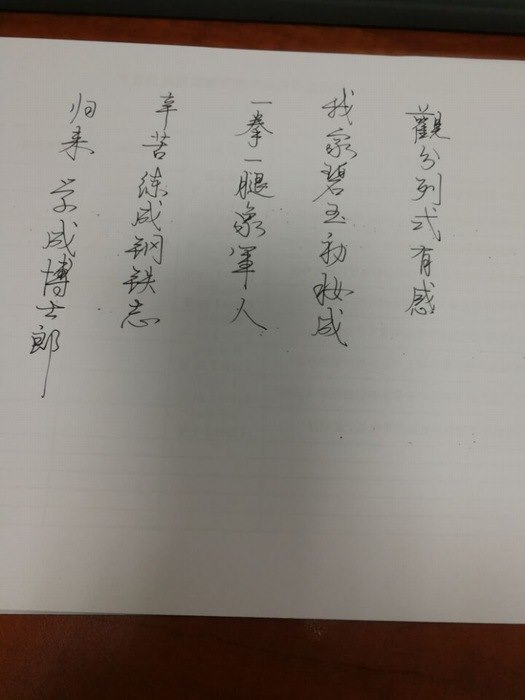 觀分列式有感
我家碧玉初妆成
一拳一腿象军人
辛苦练成钢铁志
归来学成博士郎